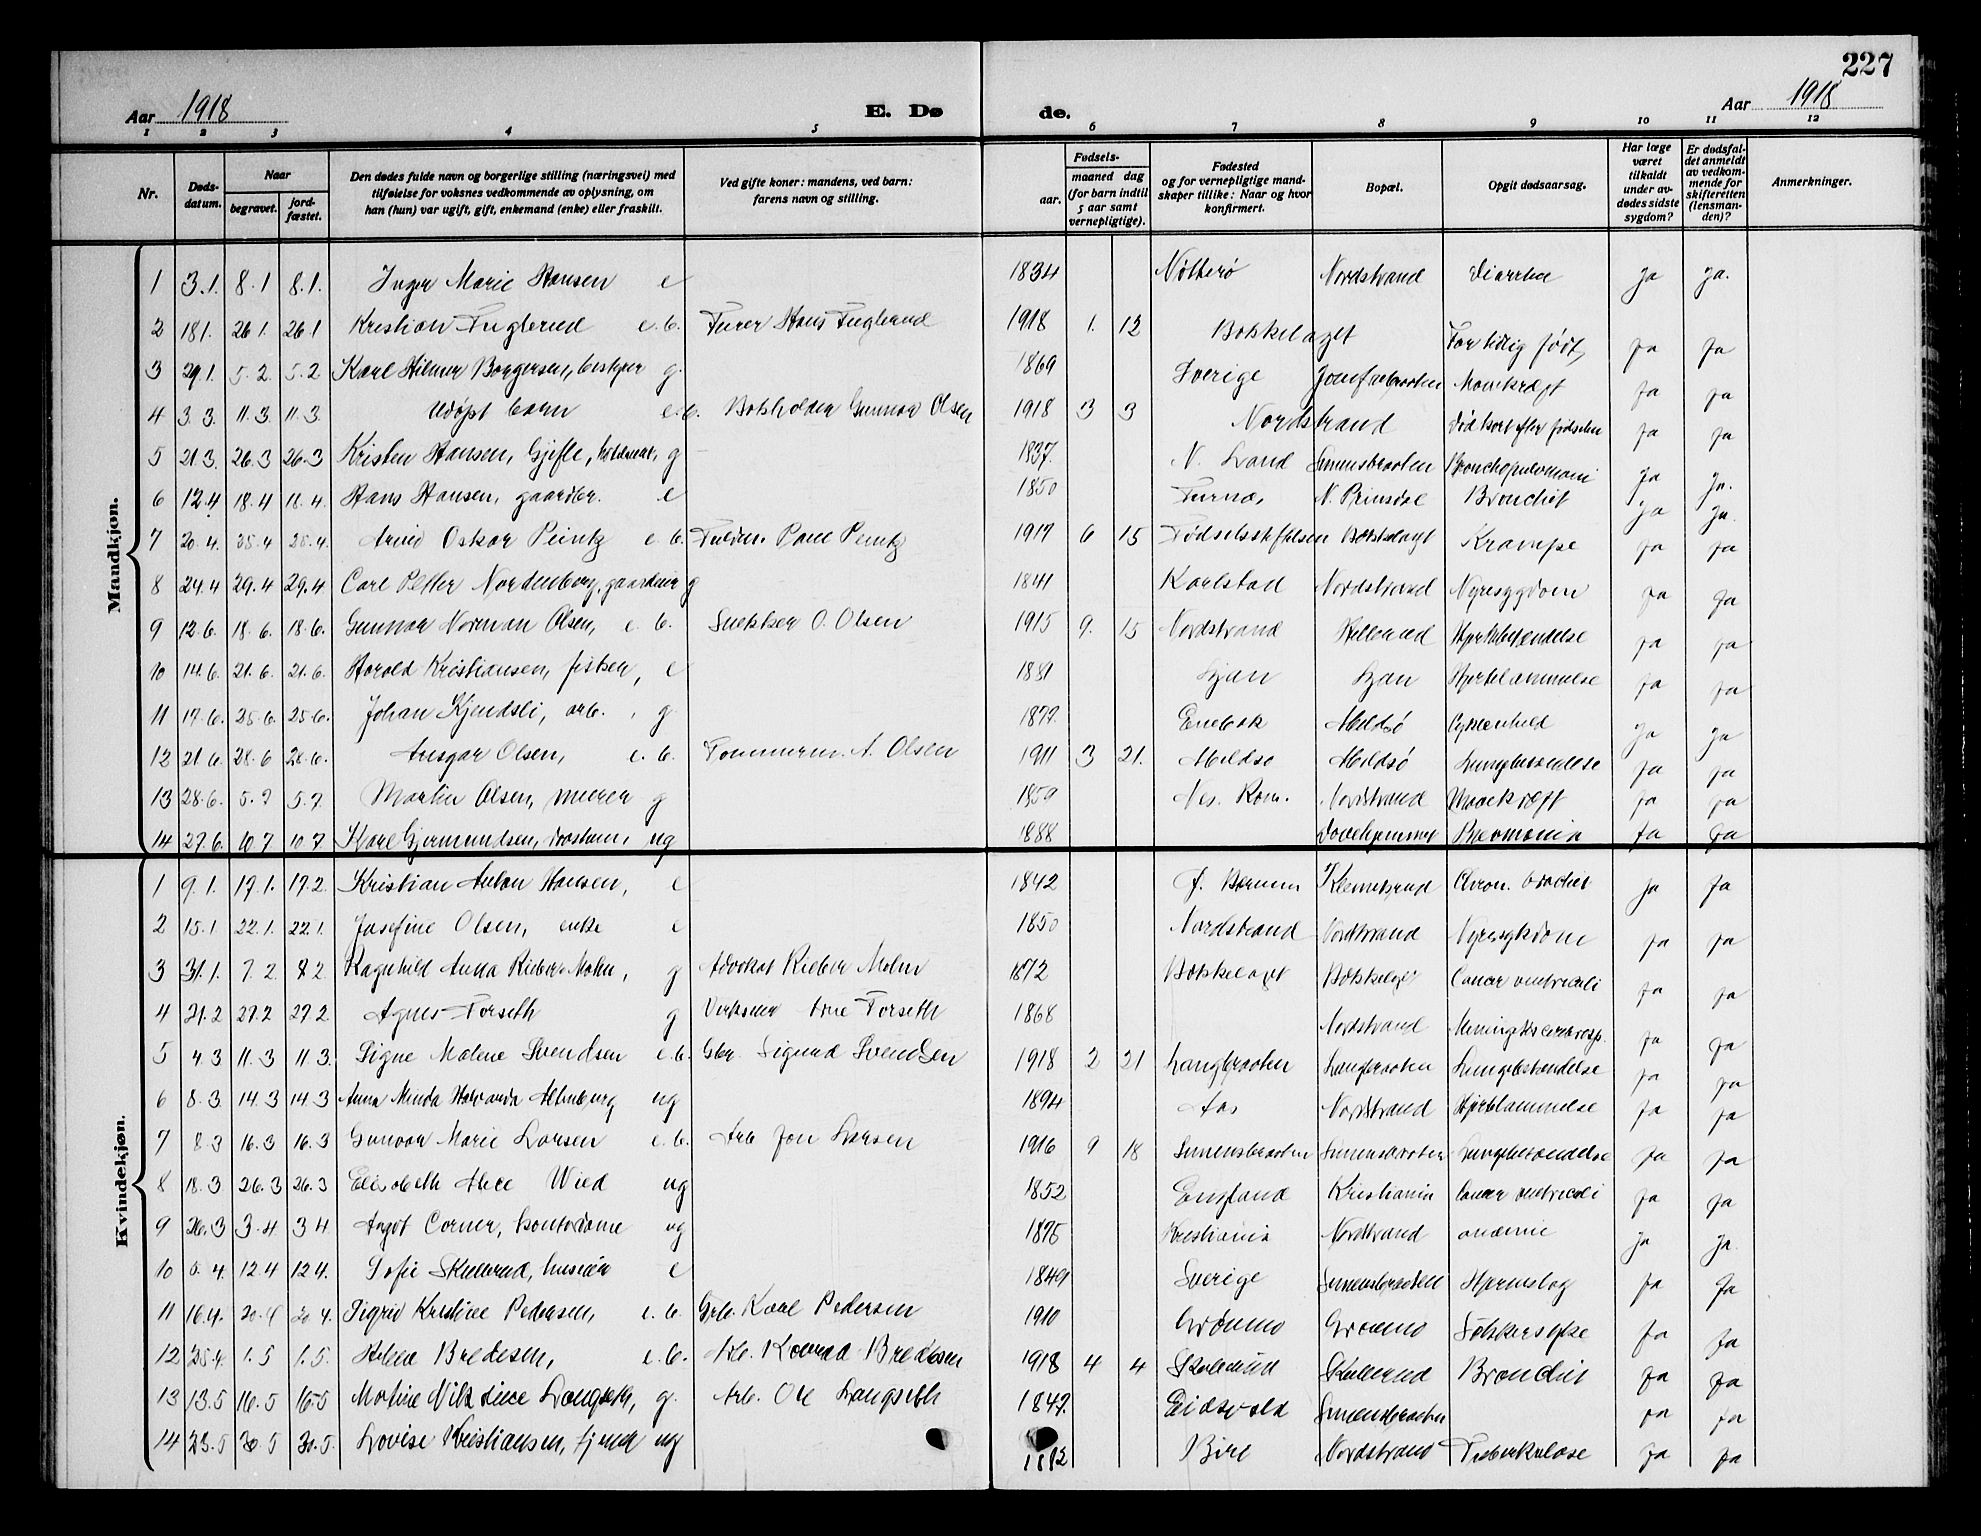 227
Aar 1918 E. Dø de. Aar 1918
1 2 3 4 5 6 7 8 9 10 11 12
Nr. Døds-datum. Naar begravet. jord-fæstet. Den dødes fulde navn og borgerlige stilling (næringsvei) med tilføielse for voksnes vedkommende av oplysning, om han (hun) var ugift, gift, enkemand (enke) eller fraskilt. Ved gifte koner: mandens, ved barn: farens navn og stilling. Fødsels- aar. maaned dag (for barn indtil 5 aar samt vernepligtige). Fødested og for vernepligtige mand-skaper tillike: Naar og hvor konfirmert. Bopæl. Opgit dødsaarsag. Har læge været tilkaldt under av-dødes sidste sygdom? Er dødsfal-det anmeldt av vedkom-mende for skifteretten (lensman-den)? Anmerkninger.
Mandkjøn.
1 3.1. 8.1 8.1. Inger Marie Hansen e 1834 Nøtterø Nordstrand Diarrhe Ja Ja.
2 18.1. 26.1. 26.1 Kristian Fuglerud e.b. Hans Fuglerud 1918 1. 12 Bekkelaget For tidig født, Ja Ja
3 29.1. 5.2. 5.2 Karl Hilmer Borgersen, g. 1869 Sverige Ja Ja
4 3.3. 11.3 11.3 Udøpt barn e.b. Gunnar Olsen 1918 3 3 Nordstrand Død kort efter fødselen Ja Ja
5 21.3. 26.3 26.3 Kristen Hansen, Gjefle, g 1837. N. Land Simensbraaten Ja Ja.
6 12.4 18.4 18.4. Hans Hansen, gaardbr. e 1850 Furnes, N. Prinsdal Bronchit Ja Ja.
7 20.4. 25.4 25.4. Arvid Oskar Peintz e.b. Paul Peintz 1917 6 15 Bekkelaget Krampe Ja Ja
8 24.4 29.4 29.4. Carl Petter Nordenborg, g 1841 Karlstad Nordstrand Nyresygdom Ja Ja
9 12.6. 18.6. 18.6. Gunnar Norman Olsen, e.b. Snekker O. Olsen 1915 9. 15 Nordstrand Ja Ja
10 14.6. 21.6. 21.6. Harald Kristiansen, fisker, e Ljan Ljan Hjertelammelse Ja Ja
11 17.6. 25.6. 25.6. Johan Kjendsli, arb., g. 1877. Enebak Ja Ja
12 21.6. 28.6 28.6. Ansgar Olsen, e.b. Tømmerm. A. Olsen 1911 3 21. Lungebetændelse Ja Ja
13 28.6. 5.7 5.7. Martin Olsen, murer g 1859 Nes, Rom. Nordstrand Ja Ja
14 27.6. 10 7 10 7. Karl Gjermundsen, ug 1888 Ja Ja
Kvindekjøn.
1 9.1. 17.1. 17.2. Kristian Anton Hansen, e 1842 Ø. Bærum Ja Ja
2 15.1 22.1. 22.1. Josefine Olsen, enke e 1850 Nordstrand Nordstrand Nyresykdom Ja Ja
3 31.1. 7.2 8.2 Ragnhild Anna Rieber-Mohn, g Advokat Rieber Mohn 1872 Bekkelaget Bekkelaget Cancer ventriculi Ja Ja
4 21.2 27.2 27.2. Agnes Forseth g Arne Forseth 1868 Nordstrand Ja Ja
5 4.3 11.3 11.3. Signe Malene Svendsen e.b. Sigurd Svendsen 1918 2 21 Langbraaten Langbraaten Lungebetændelse Ja Ja
6 8.3. 14.3 14.3 Anna Minda ug 1894 Aas Nordstrand Hjertelammelse Ja Ja
7 8.3 16.3 16.3 Gunvor Marie Larsen e.b. Arb. Jon Larsen 1916 9 18 Simensbraaten Simensbraaten Lungebetændelse Ja Ja
8 18.3 26.3 26.3 Elisabeth Alice Wied ug 1852 England Kristiania Cancer ventriculi Ja Ja
9 26.3 3.4 3 4 Angot Corner, kontordame ug 1875 Kristiania Nordstrand anæmie Ja Ja.
10 5.4. 12.4 12.4. Sofie Skullerud, e 1849 Sverige Simensbraaten Hjerneslag Ja Ja
11 16.4. 20.4 20 4. Sigrid Kristine Pedersen, e.b. Karl Pedersen 1910 Grønmo Grønmo Sukkersyke Ja Ja
12 25.4. 1.5 1.5. Bredesen, e.b. Arb. Konrad Bredesen 1918 4 4 Skullerud Skullerud Bronchit Ja Ja
13 13.5 16.5 16.5 Langseth, g. Arb. Ole Langseth 1847. Eidsvold Simensbraaten Ja Ja
14 23.5 30 5 30.5. Lovise Kristiansen, ug Biri Nordstrand Tuberkulose Ja Ja